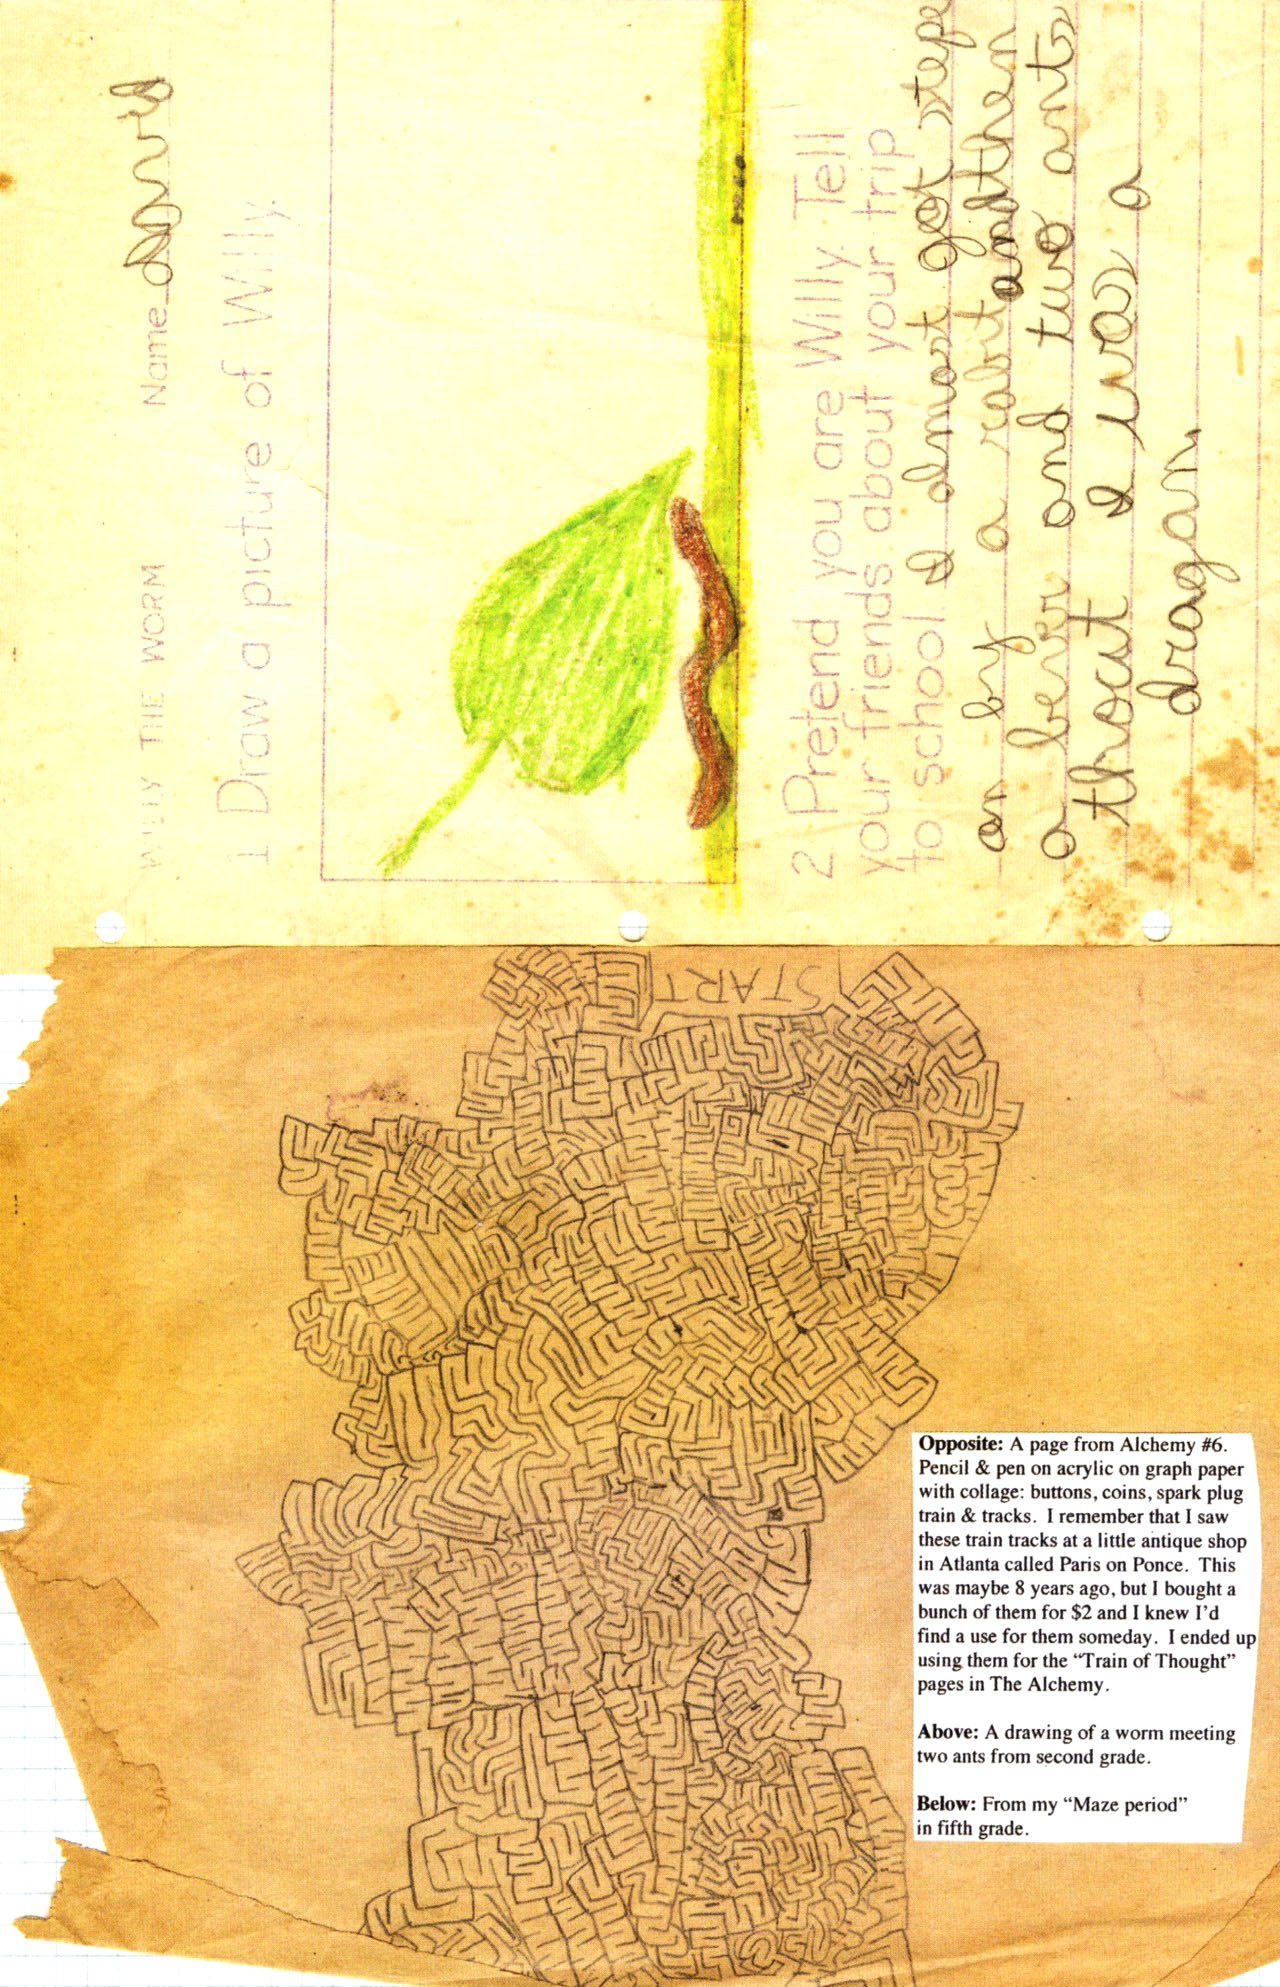 WILLY THE WORM Name David
1 Draw a picture of Willy.
2 Pretend you are Willy. Tell
your friends about your trip
to school I almost got step
on by a rabit and then
a bever and two ants
thout I was a
dragan
START
Opposite: A page from Alchemy #6.
Pencil & pen on acrylic on graph paper
with collage: buttons, coins, spark plug
train & tracks. I remember that I saw
these train tracks at a little antique shop
in Atlanta called Paris on Ponce. This
was maybe 8 years ago, but I bought a
bunch of them for $2 and I knew I'd
find a use for them someday. I ended up
using them for the “Train of Thought”
pages in The Alchemy.
Above: A drawing of a worm meeting
two ants from second grade.
Below: From my “Maze period”
in fifth grade.